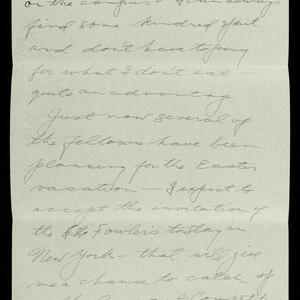 on the campus I can always
find some kindred spirit
and don't have to pay
for what I don't eat —
quite an advantage
Just now several of
the fellows have been
planning for the Easter
vacation — I expect to
accept the invitation of
the Fowlers to stay in
New York — that will give
me a chance to catch up